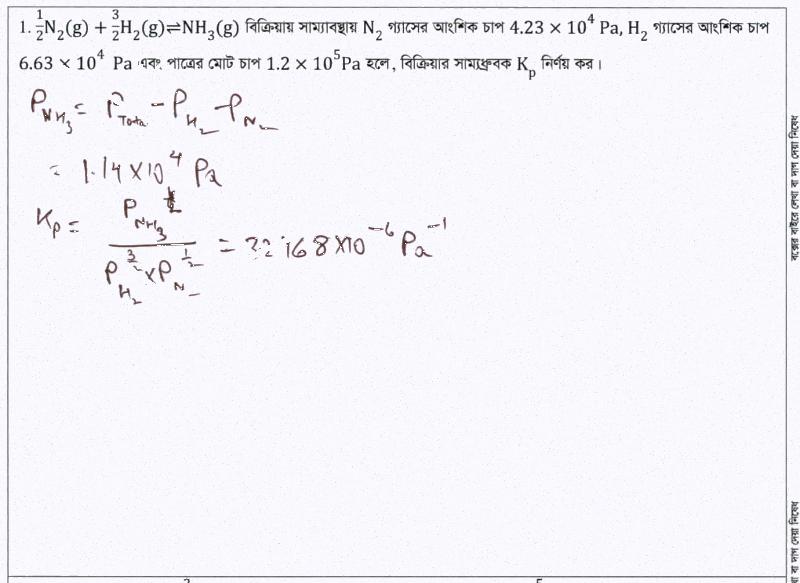 1. ½N₂(g) + 3/2H₂(g)⇌NH₃(g) বিক্রিয়ায় সাম্যাবস্থায় N₂ গ্যাসের আংশিক চাপ 4.23 × 10⁴ Pa, H₂ গ্যাসের আংশিক চাপ
6.63 × 10⁴ Pa এবং পাত্রের মোট চাপ 1.2 × 10⁵Pa হলে, বিক্রিয়ার সাম্যধ্রুবক Kₚ নির্ণয় কর।
P_NH₃ = P_Total - P_H₂ - P_N₂
= 1.14 × 10⁴ Pa
Kₚ = P_NH₃ / (P_H₂^3/2 × P_N₂^1/2) = 168 × 10⁻⁶ Pa⁻¹
বক্সের বাইরে লেখা বা দাগ দেয়া নিষেধ
বা দাগ দেয়া নিষেধ